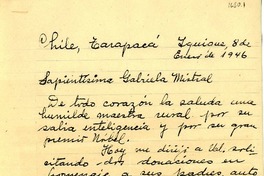 Chile, Tarapacá Iquique, 8 de
Enero de 1946
Sapientísima Gabriela Mistral
De todo corazón la saluda una
humilde maestra rural por su
sabia inteligencia y por su gran
premio Nóbel.
Hoy me dirijí a Ud. soli
citando dos donaciones en
homenaje a sus padres, auto